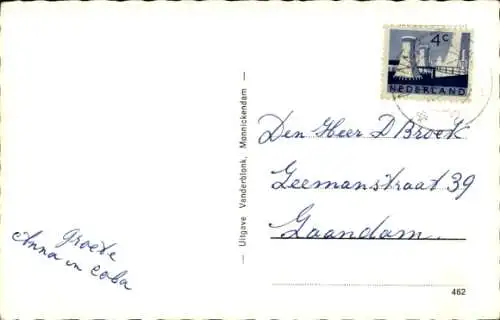 4c
NEDERLAND
Den Heer D Broek
Zeemanstraat 39
Zaandam.
Uitgave Vanderblonk, Monnickendam
Groete
Anna en Coba
462